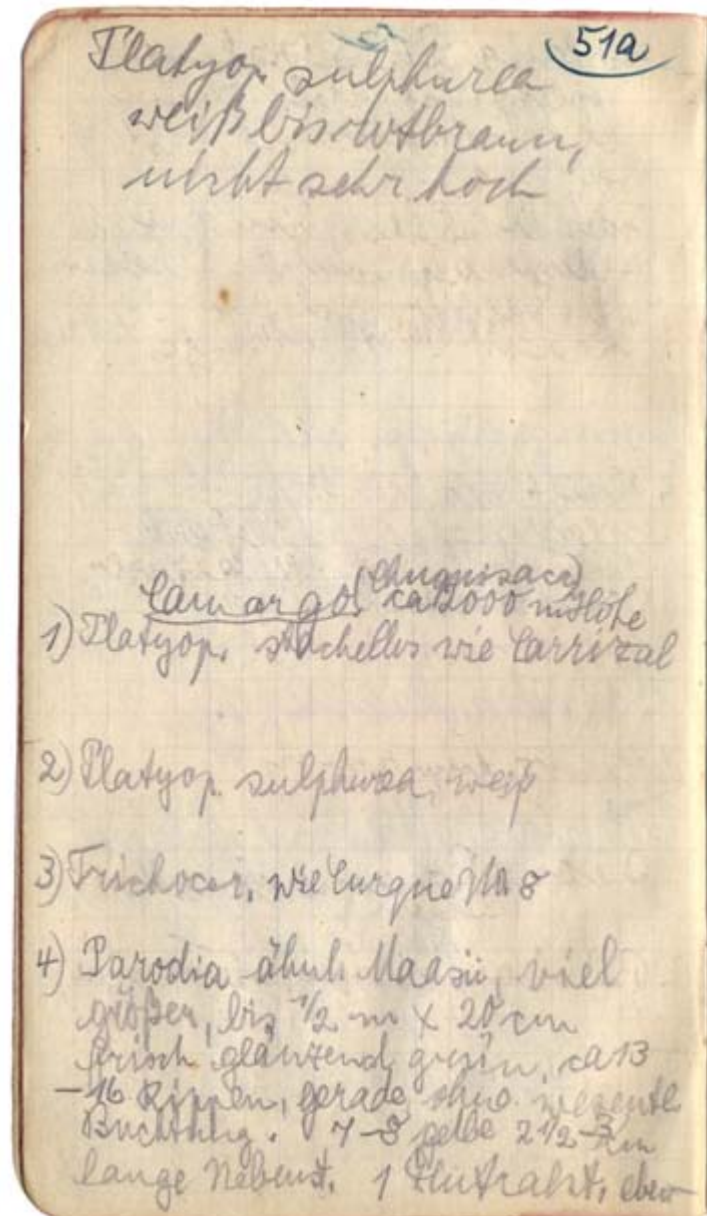 51a
Platyop. sulphurea
weiß bis rotbraun,
nicht sehr hoch
Camargo (Chuquisaca)
ca 2000 m Höhe
1) Platyop. stachellos wie Carrizal
2) Platyop. sulphurea, weiß
3) Trichocer. wie Curque No 8
4) Parodia ähnl. Maasii, viel
größer, bis 1/2 m x 20 cm
frisch glänzend grün, ca 13
-16 Rippen, gerade ohne wesentl
Buchtung. 7-8 gelbe 2 1/2-3 cm
lange Nebenst. 1 Zentralst. eben-